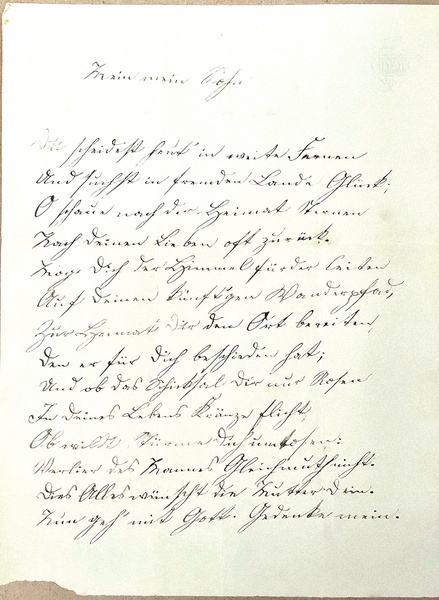 Mein mein Sohn
Du scheidest heut' in weite Fernen
Und suchst in fremden Lande Glück;
O schaue nach der Heimat Sternen
Nach deinen Lieben oft zurück.
Mag Dich der Himmel fürder leiten
Auf deinen künft'gen Wanderpfad,
Zur Heimat Dir den Ort bereiten,
Den er für Dich beschieden hat;
Und ob das Schicksal Dir nur Rosen
In deines Lebens Kränze flicht,
Ob wilde Stürme Dich umtosen:
Verlier des Mannes Gleichmuth nicht.
Dies Alles wünscht die Mutter Dein.
Nun geh' mit Gott. Gedenke mein.